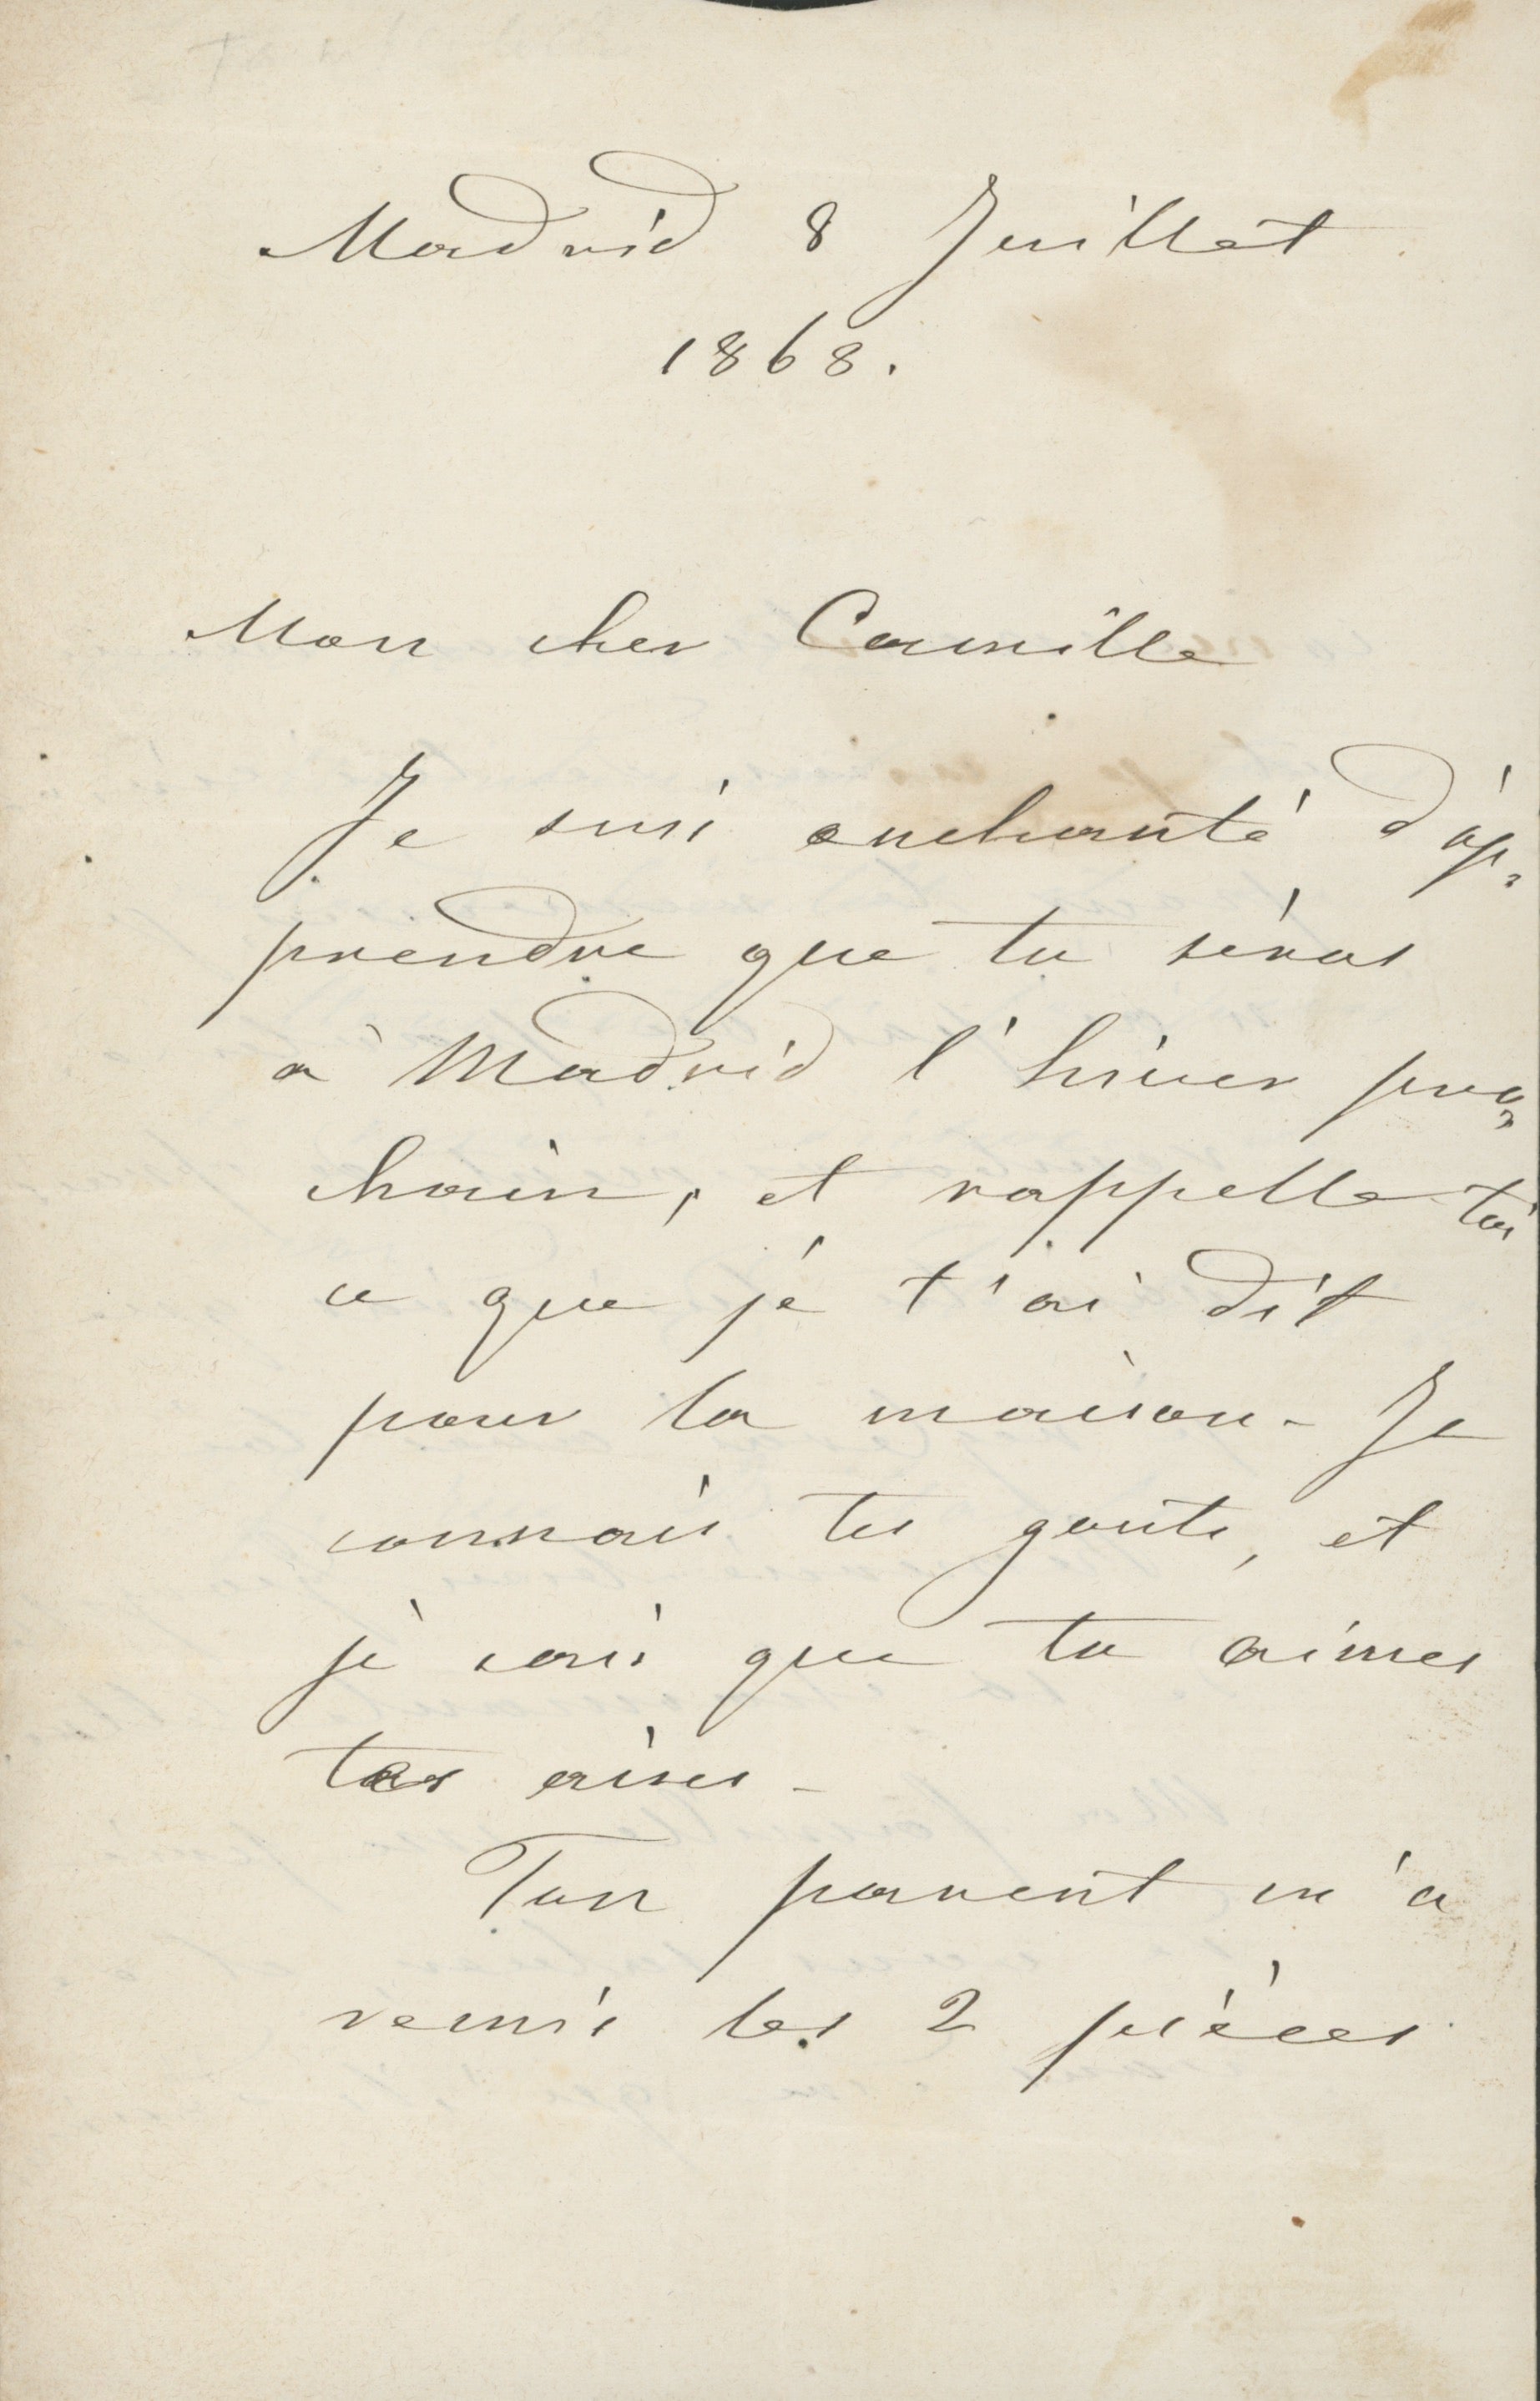 Madrid 8 Juillet
1868.
Mon cher Camille
Je suis enchanté d'ap-
prendre que tu seras
à Madrid l'hiver pro-
chain, et rappelle toi
ce que je t'ai dit
pour la maison - Je
connais tes gouts, et
je sais que tu aimes
tes aises -
Ton parent m'a
remis les 2 pièces